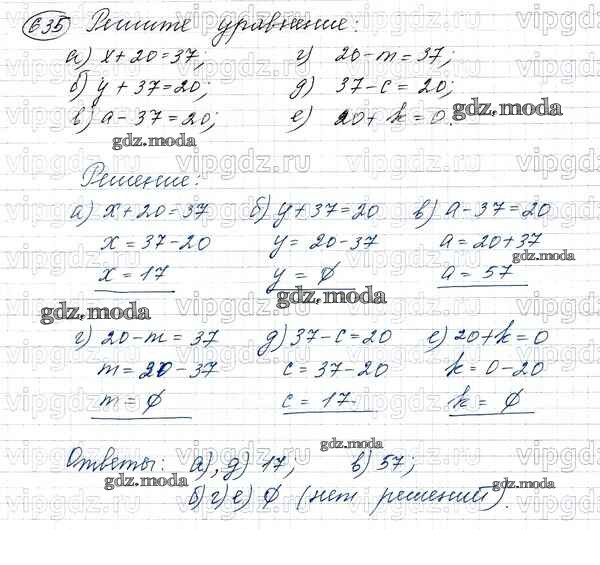 635 Решите уравнение:
а) x+20=37; г) 20-m=37;
б) y+37=20; д) 37-c=20;
в) a-37=20; е) 20+k=0.
gdz.moda gdz.moda
Решение:
а) x+20=37 б) y+37=20 в) a-37=20
x=37-20 y=20-37 a=20+37
gdz.moda
x=17 y=∅ a=57
gdz.moda gdz.moda
г) 20-m=37 д) 37-c=20 е) 20+k=0
m=20-37 c=37-20 k=0-20
m=∅ c=17 k=∅
gdz.moda
Ответы: а), д) 17; в) 57;
gdz.moda gdz.moda
б) г) е) ∅ (нет решений).
vipgdz.ru